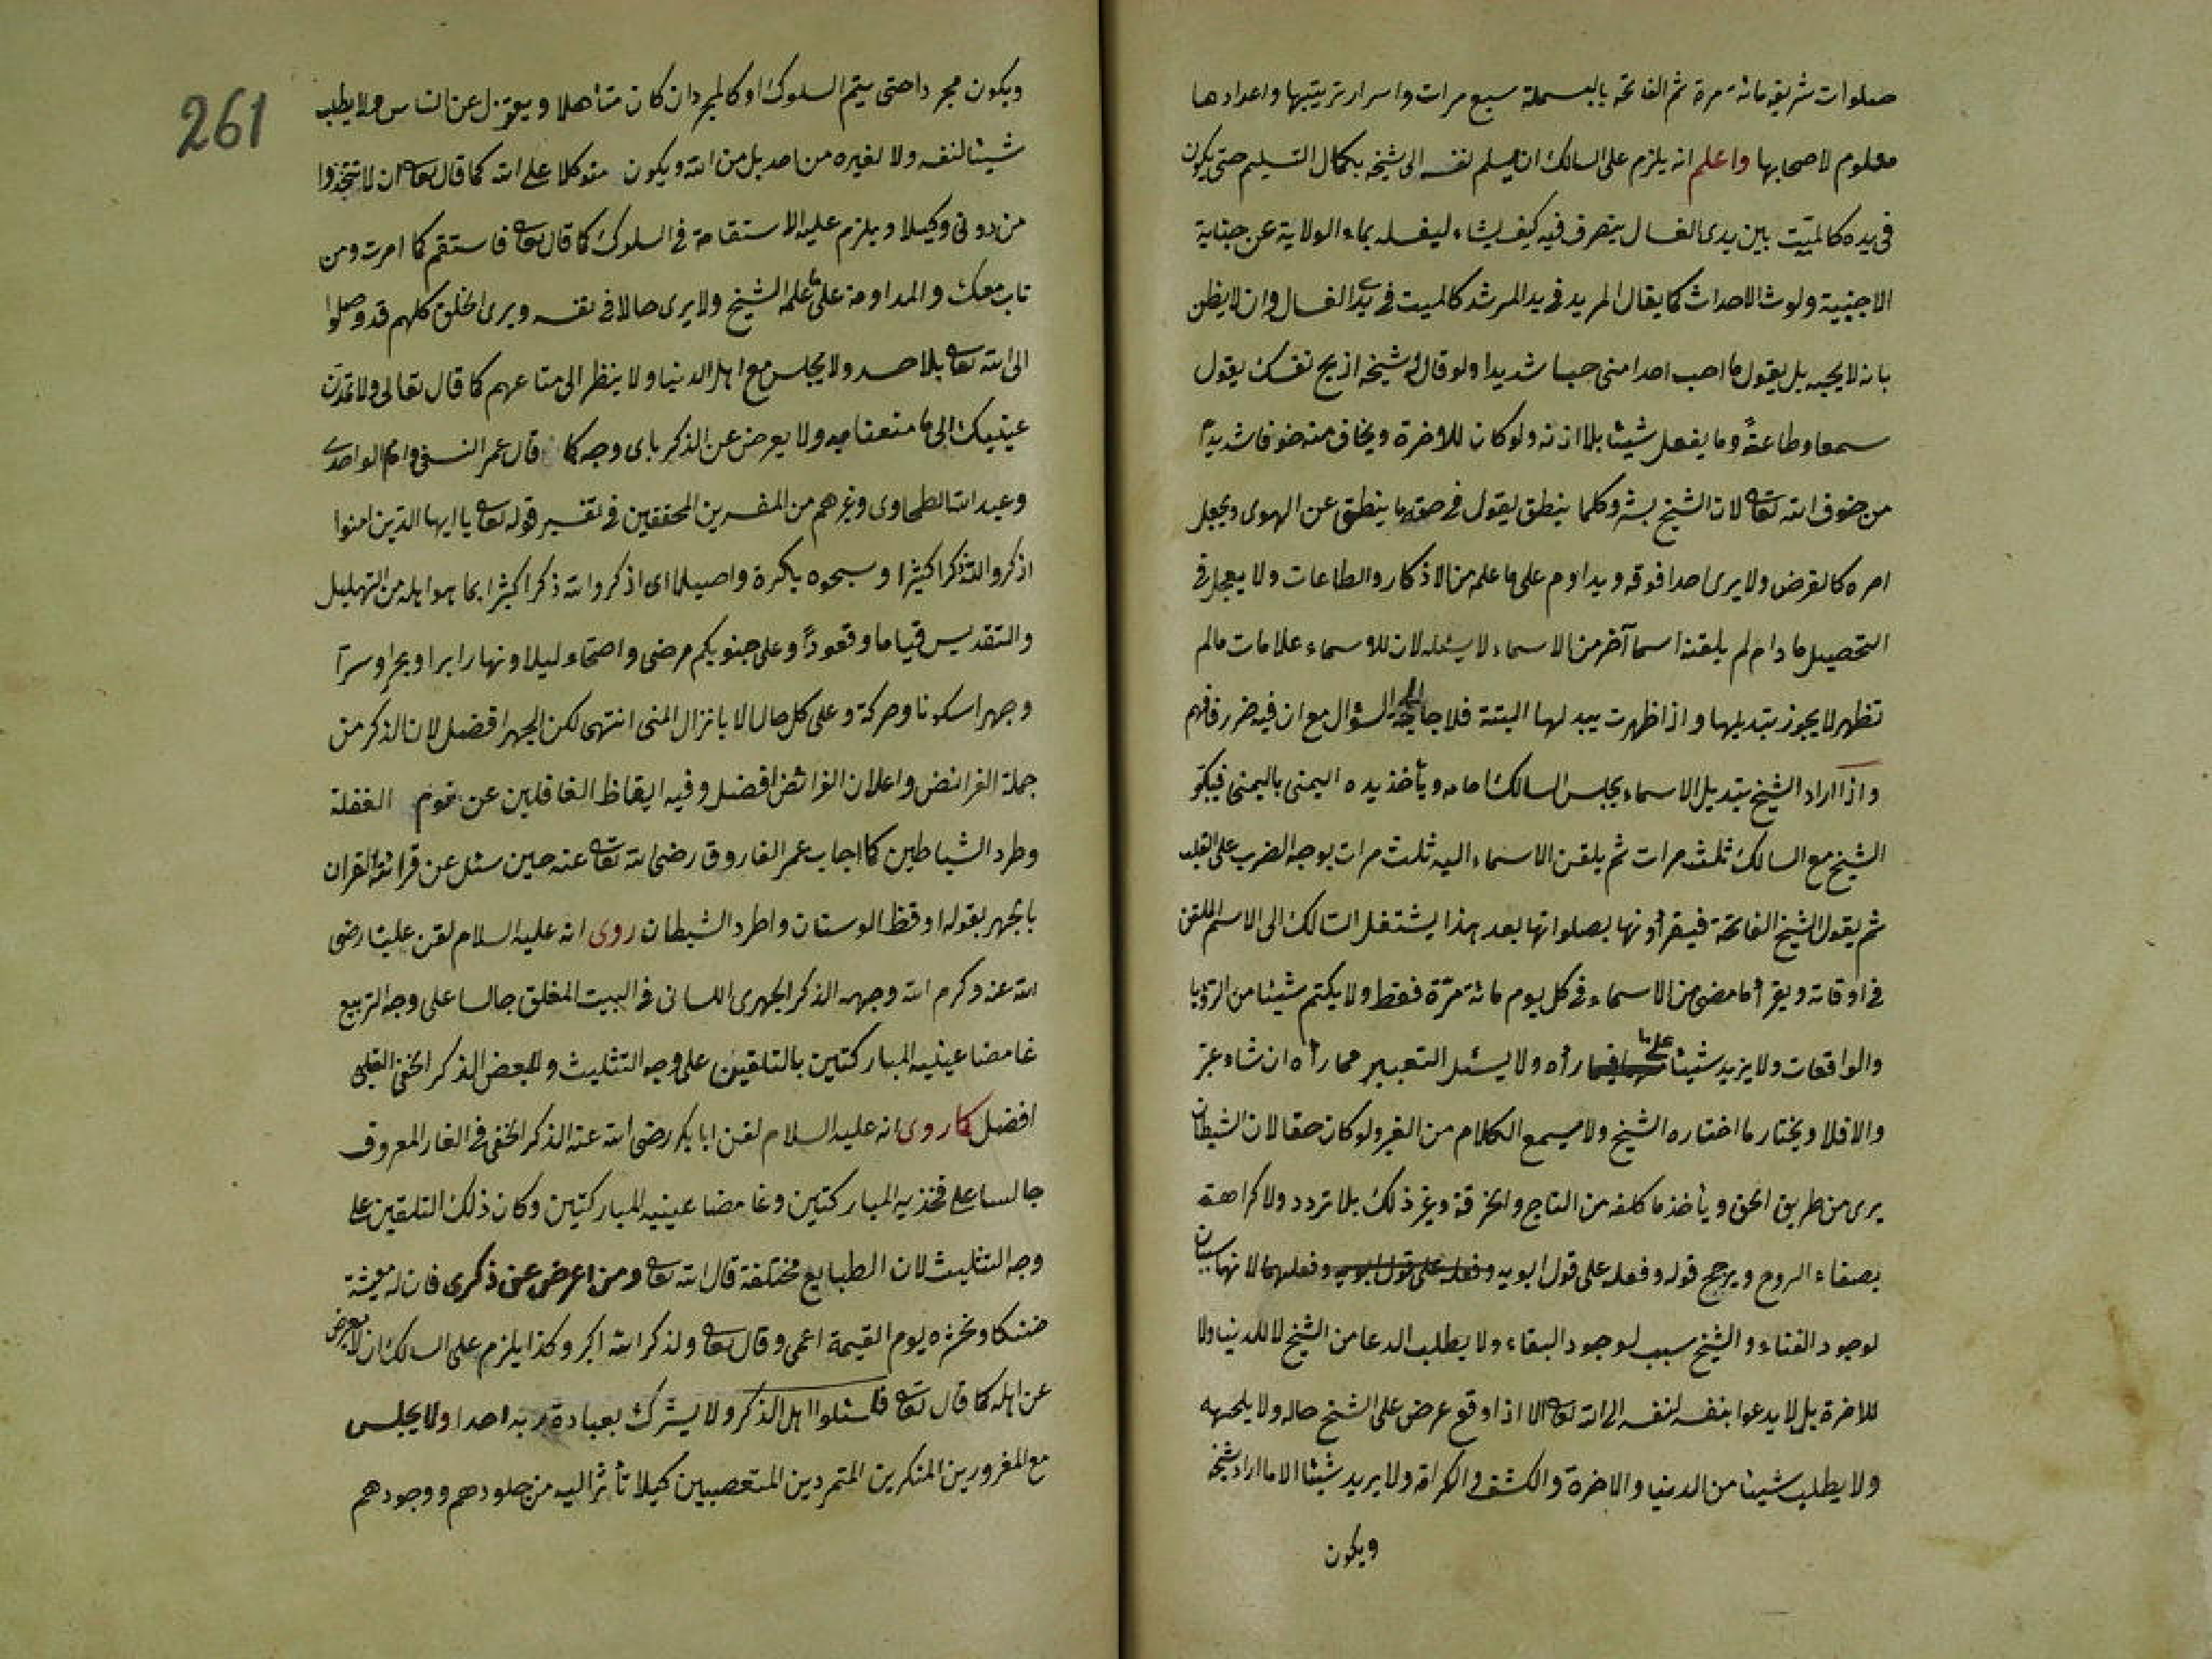 صلوات شريفه مائة مرة ثم الفاتحة بالبسملة سبع مرات واسرار ترتيبها واعدادها
معلوم لاصحابها واعلم انه يلزم على السالك ان يسلم نفسه الى شيخه بكمال التسليم حتى يكون
فى يده كالميت بين يدى الغسال يتصرف فيه كيف يشاء ليغسله بماء الولاية عن جنابة
الاجنبية ولوث الاحداث كما يقال المريد فى يد المرشد كالميت فى يدى الغسال وان لا يظن
بانه لا يحبه بل يقول ما احب احدا منى حبا شديدا ولو قال له شيخه اذبح نفسك يقول
سمعا وطاعةً وما يفعل شيئا بلا اذنه ولو كان للاخرة ويخاف منه خوفا شديداً
من خوف الله تعالى لان الشيخ بشر وكلما ينطق يقول فى حقه ما ينطق عن الهوى ويجعل
امره كالفرض ولا يرى احدا فوقه ويداوم على ما علمه من الاذكار والطاعات ولا يعجل فى
التحصيل ما دام لم يلقنه اسما آخر من الاسماء لا يسئله لان للاسماء علامات مالم
تظهر لا يجوز تبديلها واذا ظهرت يبدلها البتة فلا حاجة الى السؤال مع ان فيه ضرر فافهم
واذا اراد الشيخ تبديل الاسماء يجلس السالك امامه ويأخذ يده اليمنى باليمنى فيكبر
الشيخ مع السالك ثلث مرات ثم يلقن الاسماء اليه ثلث مرات بوجه الضرب على القلب
ثم يقول الشيخ الفاتحة فيقرأونها بصلواتها بعد هذا يشتغل السالك الى الاسم الملقن
فى اوقاته ويقرأ ما مضى من الاسماء فى كل يوم مائة مرّة فقط ولا يكتم شيئا من الرؤيا
والواقعات ولا يزيد شيئا على ما رأه ولا يسئل التعبير مما رأه ان شاء عبّر
والا فلا ويختار ما اختاره الشيخ ولا يسمع الكلام من الغير ولو كان حقا لان الشيطان
يرى من طريق الحق ويأخذ ما كلفه من التاج والخرقة وغير ذلك بلا تردد ولا كراهة
بصفاء الروح ويرجح قوله وفعله على قول ابويه وفعله على قول ابويه وفعلهما لانهما سببان
لوجود الفناء والشيخ سبب لوجود البقاء ولا يطلب الدعا من الشيخ لا للدنيا ولا
للاخرة بل لا يدعوا بنفسه لنفسه الى الله تعالى الا اذا وقع عرض على الشيخ حاله ولا يلحه
ولا يطلب شيئا من الدنيا والاخرة والكشف والكرامة ولا يريد شيئا الا ما اراد شيخه
ويكون
261
ويكون مجردا حتى يتم السلوك او كالمجرد ان كان متأهلا ويعتزل عن الناس ولا يطلب
شيئا لنفسه ولا لغيره من احد بل من الله ويكون متوكلا على الله كما قال تعالى ان لا تتخذوا
من دونى وكيلا ويلزم عليه الاستقامة فى السلوك كما قال تعالى فاستقم كما امرت ومن
تاب معك والمداومة على ما علمه الشيخ ولا يرى حالا فى نفسه ويرى الخلق كلهم قد وصلوا
الى الله تعالى بلا حسد ولا يجلس مع اهل الدنيا ولا ينظر الى متاعهم كما قال تعالى ولا تمدن
عينيك الى ما متعنا به ولا يعرض عن الذكر باى وجه كما قال عمر النسفى وامام الواحدى
وعبد الله الطحاوى وغيرهم من المفسرين المحققين فى تفسير قوله تعالى يا ايها الذين امنوا
اذكروا الله ذكرا كثيرا وسبحوه بكرة واصيلا اى اذكروا الله ذكرا كثيرا بما هو اهله من التهليل
والتقديس قياما وقعوداً وعلى جنوبكم مرضى واصحاء ليلا ونهارا برا وبحرا وسرآ
وجهرا سكونا وحركة وعلى كل حال الا بانزال المنى انتهى لكن الجهر افضل لان الذكر من
جملة الفرائض واعلان الفرائض افضل وفيه ايقاظ الغافلين عن نوم الغفلة
وطرد الشياطين كما اجاب عمر الفاروق رضى الله تعالى عنه حين سئل عن قرائة القران
بالجهر بقوله اوقظ الوسنان واطرد الشيطان روى انه عليه السلام لقن عليا رضى
الله عنه وكرم الله وجهه الذكر الجهرى اللسانى فى البيت المغلق جالسا على وجه التربيع
غامضا عينيه المباركتين بالتلقين على وجه التثليث وللبعض الذكر الخفى القلبى
افضل كما روى انه عليه السلام لقن ابا بكر رضى الله عنه الذكر الخفى فى الغار المعروف
جالسا على فخذيه المباركتين وغامضا عينيه المباركتين وكان ذلك التلقين على
وجه التثليث لان الطبايع مختلفة قال الله تعالى ومن اعرض عن ذكرى فان له معيشة
ضنكا ونحشره يوم القيمة اعمى وقال تعالى ولذكر الله اكبر وكذا يلزم على السالك ان لا يعرض
عن اهله كما قال تعالى فاسئلوا اهل الذكر ولا يشرك بعبادة ربه احدا ولا يجلس
مع المغرورين المنكرين المتمردين المتعصبين كيلا تأثر اليه من جلودهم ووجودهم